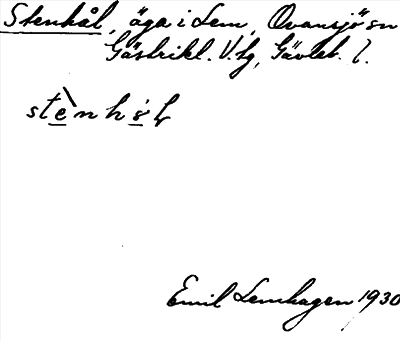 Stenhål, äga i Lem, Ovansjö sn
Gästrikl. V. tg, Gävleb. l.
stènhål
Emil Lemhagen 1930